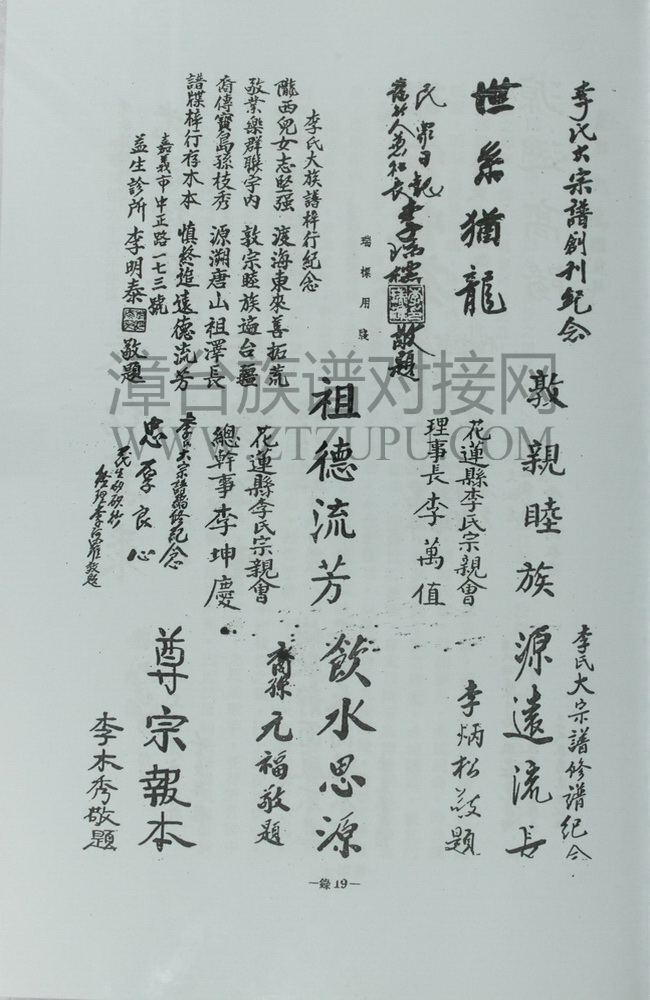 李氏大宗譜創刊紀念
世系猶龍
民眾日報
發行人兼社長李瑞標敬題
瑞標用牋
李氏大族譜梓行紀念
隴西兒女志堅强 渡海東來善拓荒
敬業樂群聯宇內 敦宗睦族遍台疆
裔傳寶島孫枝秀 源溯唐山祖澤長
譜牒梓行存木本 慎終追遠德流芳
嘉義市中正路一七三號
益生診所 李明泰 敬題
敦親睦族
花蓮縣李氏宗親會
理事長李萬值
祖德流芳
花蓮縣李氏宗親會
總幹事李坤慶
李氏大宗譜編修紀念
忠厚良心
李氏大宗譜修譜紀念
源遠流長
李炳松敬題
飲水思源
裔孫元福敬題
尊宗報本
李木秀敬題
—錄19—
漳台族谱对接网
WWW.ZTZUPU.COM